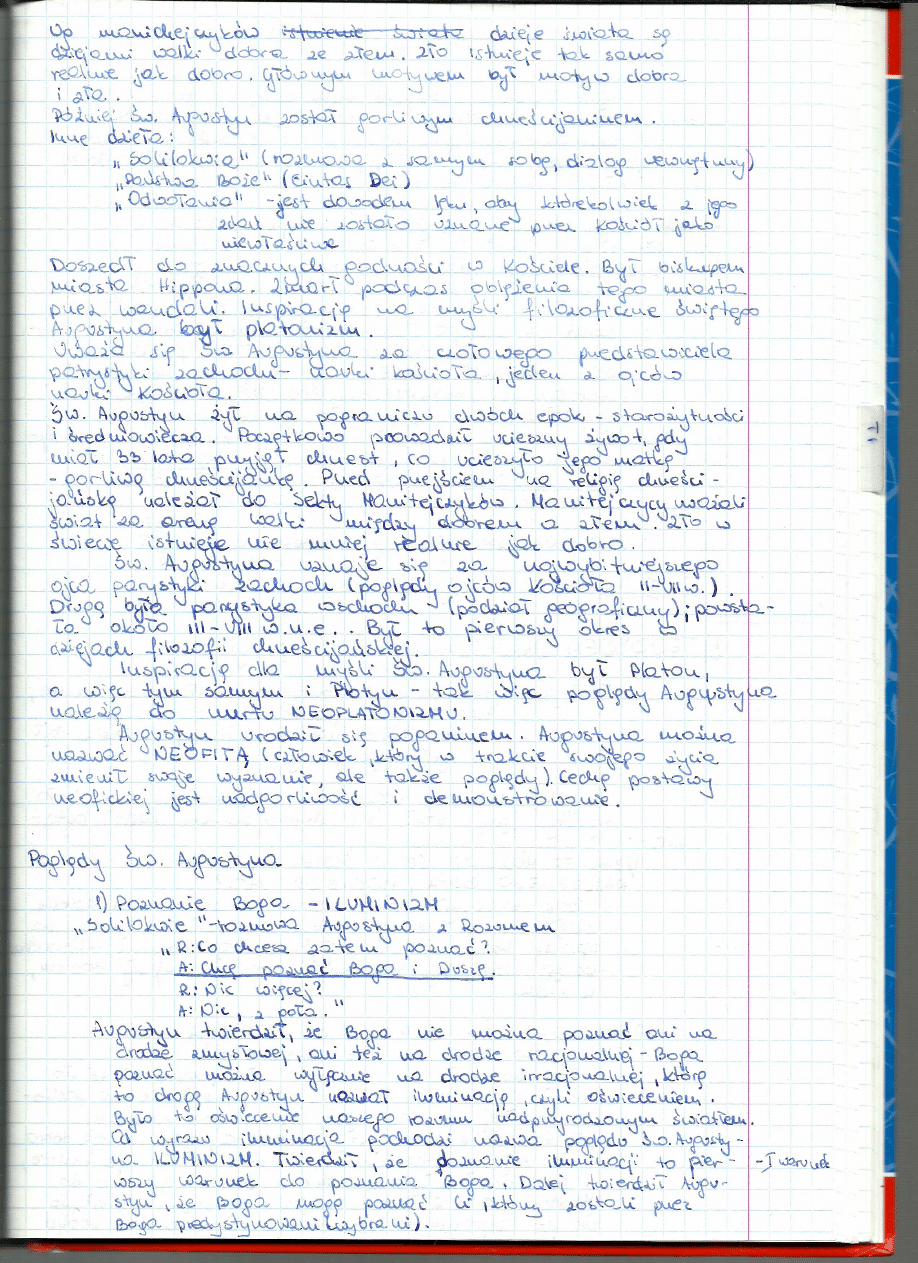 Wg manichejczyków istnienie świata dzieje świata są
dziejami walki dobra ze złem. Zło istnieje tak samo
realnie jak dobro. Głównym motywem był motyw dobra
i zła.
Później Św. Augustyn został gorliwym chrześcijaninem.
Inne dzieła:
„Solilokwia" (rozmowa z samym sobą, dialog wewnętrzny)
„Państwo Boże" (Civitas Dei)
„Odwołania" - jest dowodem lęku, aby którekolwiek z jego
zdań nie zostało uznane przez Kościół jako
niewłaściwe
Doszedł do znacznych godności w Kościele. Był biskupem
miasta Hippona. Zmarł podczas oblężenia tego miasta
przez wandali. Inspirację na myśli filozoficzne świętego
Augustyna był platonizm.
Uważa się Św Augustyna za czołowego przedstawiciela
patrystyki zachodu - nauki kościoła, jeden z ojców
nauki Kościoła.
Św. Augustyn żył na pograniczu dwóch epok - starożytności
i średniowiecza. Początkowo prowadził ucieszny żywot, gdy
miał 33 lata przyjął chrzest, co ucieszyło jego matkę
- gorliwą chrześcijankę. Przed przejściem na religię chrześci-
jańską należał do Sekty Manitejczyków. Manitejczycy uważali
świat za arenę walki między dobrem a złem. Zło w
świecie istnieje nie mniej realnie jak dobro.
Św. Augustyna uznaje się za najwybitniejszego
ojca parystyki zachod (poglądy ojców Kościoła II-VIIw.).
Drugą była parystyka wschodu - (podział geograficzny); powsta-
ła około III-VIII w.n.e.. Był to pierwszy okres w
dziejach filozofii chrześcijańskiej.
Inspirację dla myśli Św. Augustyna był Platon,
a więc tym samym i Plotyn - tak więc poglądy Augustyna
należą do nurtu NEOPLATONIZMU.
Augustyn urodził się poganinem. Augustyna można
nazwać NEOFITĄ (człowiek, który w trakcie swojego życia
zmienił swoje wyznanie, ale także poglądy). Cechą postawy
neofickiej jest nadgorliwość i demonstrowanie.
Poglądy Św. Augustyna
1) Poznanie Boga - ILUMINIZM
„Solilokwie" - rozmowa Augustyna z Rozumem
„R: Co chcesz zatem poznać?
A: Chcę poznać Boga i Duszę.
R: Nic więcej?
A: Nic, z goła."
Augustyn twierdził, że Boga nie można poznać ani na
drodze zmysłowej, ani też na drodze racjonalnej - Boga
poznać można wyłącznie na drodze irracjonalnej, którą
to drogę Augustyn nazwał iluminacją, czyli oświeceniem.
Było to oświecenie naszego rozumu nadprzyrodzonym światłem.
Od wyrazu iluminacja pochodzi nazwa poglądu Św. Augusty-
na ILUMINIZM. Twierdził, że poznanie iluminacji to pier- - I warunek
wszy warunek do poznania Boga. Dalej twierdził Augu-
styn, że Boga mogą poznać Ci, którzy zostali przez
Boga predystynowani (wybrani).